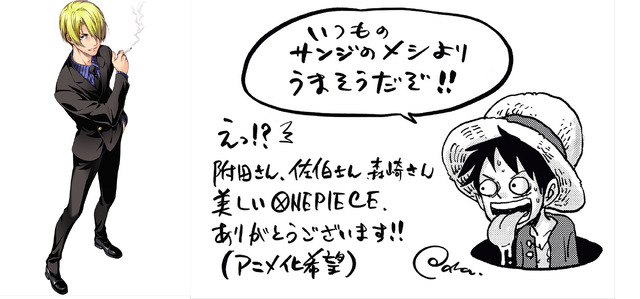 いつもの
サンジのメシより
うまそうだぞ!!
えっ!?
附田さん、佐伯さん 森崎さん
美しいONEPIECE、
ありがとうございます!!
(アニメ化希望)